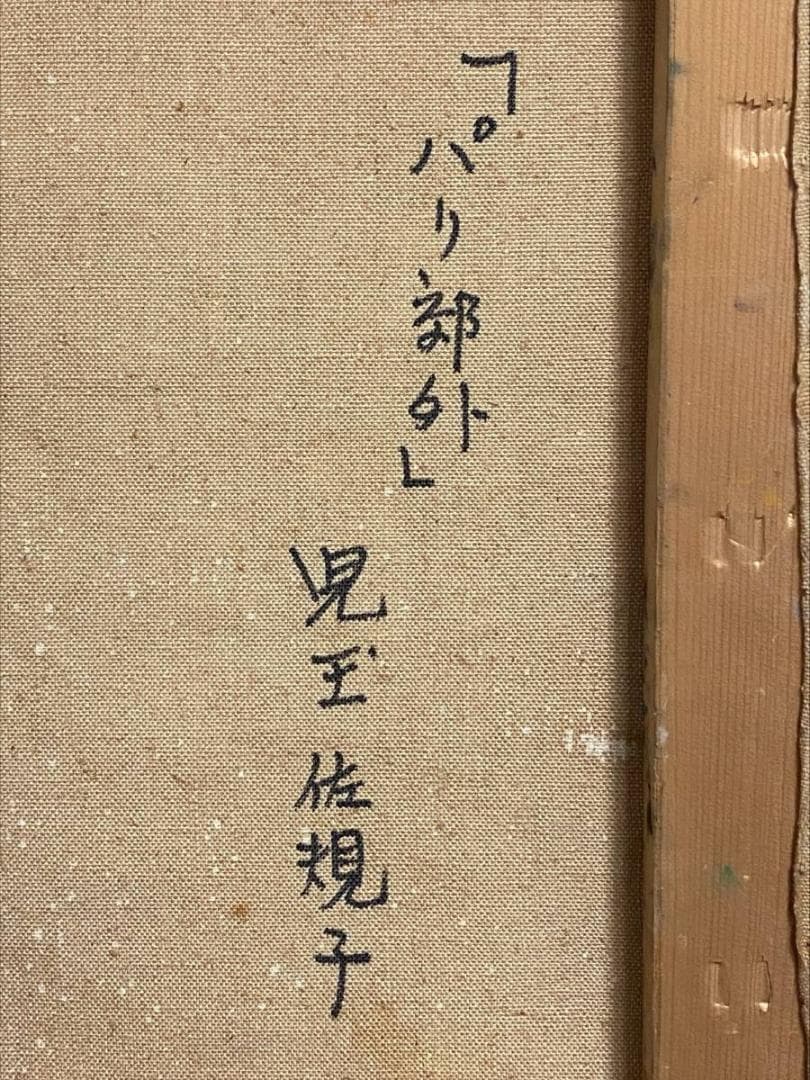 「パリ郊外」
児玉佐規子